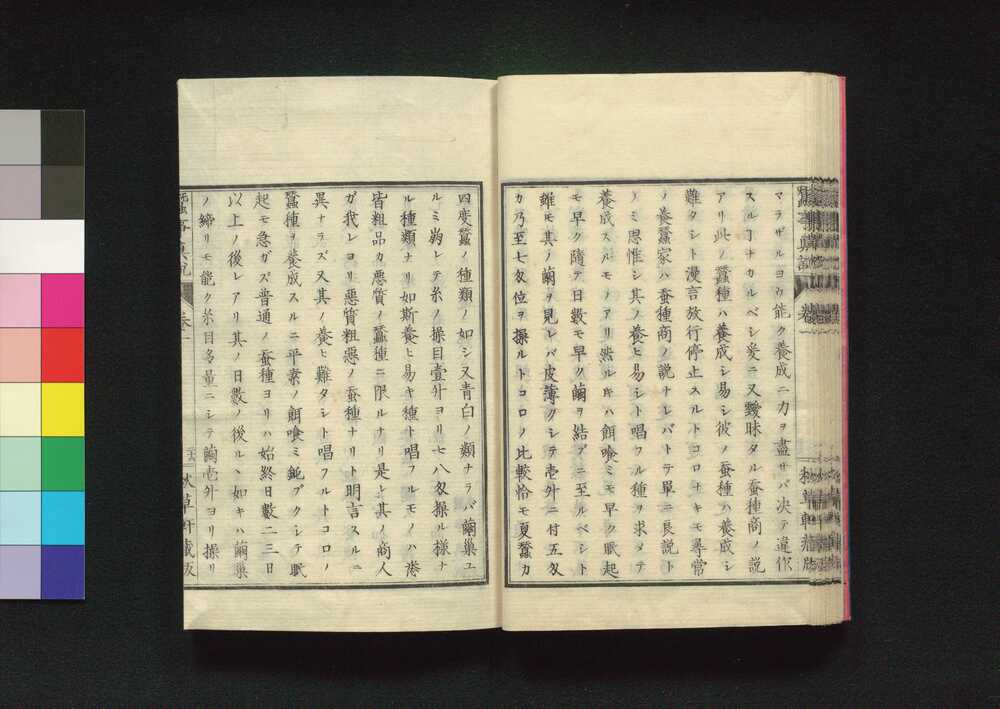 マラザルヨウ能ク養成ニ力ヲ盡サバ决テ違作
スルヿナカルベシ爰ニ又曖昧タル蚕種商ノ説
アリ此ノ蚕種ハ養成シ易シ彼ノ蚕種ハ養成シ
難タシト漫言放行停止スルトコロナキモ尋常
ノ養蚕家ハ蚕種商ノ説ナレバトテ單ニ良説ト
ノミ思惟シ其ノ養ヒ易シト唱フル種ヲ求メテ
養成スルモノアリ然ル𪜈餌喰ミモ早ク眠起
モ早ク隨テ日數モ早ク繭ヲ結ブニ至ルベシト
雖モ其ノ繭ヲ見レバ皮薄クシテ壱升ニ付五匁
カ乃至七匁位ヲ操ルトコロノ比較恰モ夏蠶カ
四度蠶ノ種類ノ如シ又青白ノ類ナラバ繭巢ユ
ルミ崩レテ糸ノ操目壹升ヨリ七八匁操ル様ナ
ル種類ナリ如斯養ヒ易キ種ト唱フルモノハ
皆粗品カ悪質ノ蠶種ニ限ルナリ是レ其ノ商人
ガ我レヨリ悪質粗悪ノ蚕種ナリト明言スルニ
異ナラズ又其ノ養ヒ難タシト唱フルトコロノ
蠶種ヲ養成スルニ平素ノ餌喰ミ鈍ブクシテ眠
起モ急ガズ普通ノ蚕種ヨリハ始終日數二三日
以上ノ後レアリ其ノ日數ノ後ルヽ如キハ繭巢
ノ締リモ能ク糸目多量ニシテ繭壱升ヨリ操リ
卷一
秋草軒蔵版